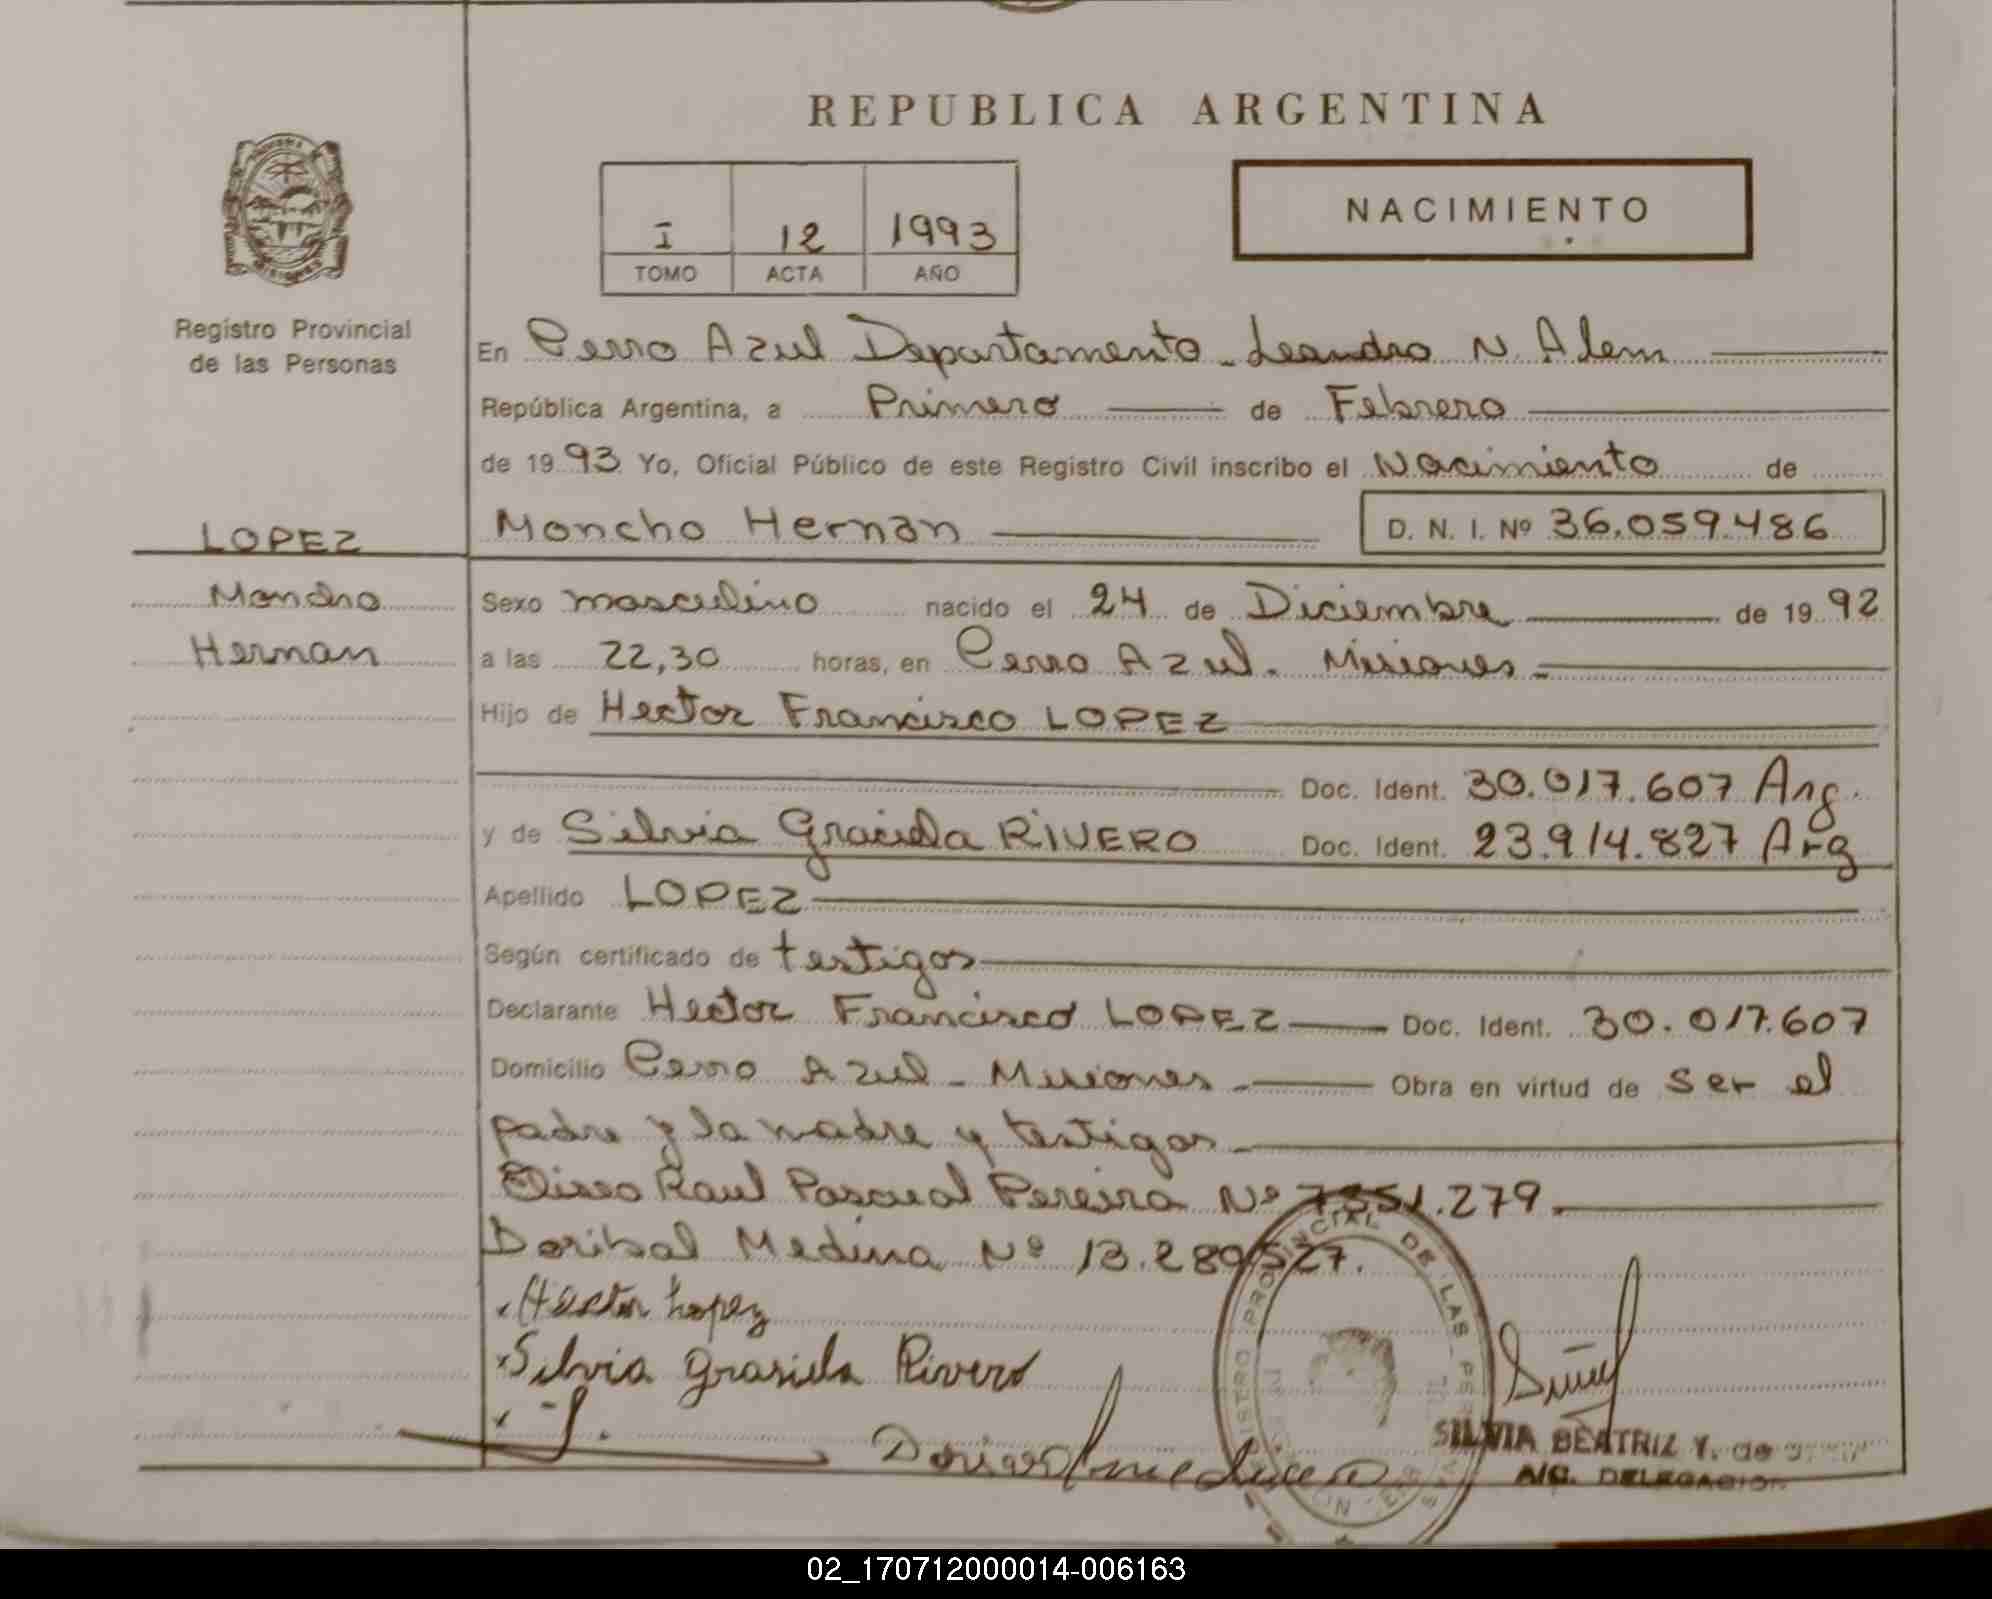 REPUBLICA ARGENTINA
I 12 1993
TOMO ACTA AÑO
NACIMIENTO
Registro Provincial
de las Personas
LOPEZ
Moncho
Hernan
En Cerro Azul Departamento - Leandro N. Alem
República Argentina, a Primero de Febrero
de 19 93 Yo, Oficial Público de este Registro Civil inscribo el Nacimiento de
Moncho Hernan D. N. I. Nº 36.059.486
Sexo masculino nacido el 24 de Diciembre de 19 92
a las 22,30 horas, en Cerro Azul. Misiones
Hijo de Hector Francisco LOPEZ
Doc. Ident. 30.017.607 Arg.
y de Silvia Graciela RIVERO Doc. Ident. 23.914.827 Arg
Apellido LOPEZ
Según certificado de testigos
Declarante Hector Francisco LOPEZ Doc. Ident. 30.017.607
Domicilio Cerro Azul - Misiones Obra en virtud de ser el
padre y la madre y testigos
Raul Pascual Pereira Nº 7351.279
Doribal Medina Nº 13.289527.
Hector Lopez
Silvia Grasiela Rivero
SILVIA BEATRIZ Y. de
A/C. DELEGACION
02_170712000014-006163